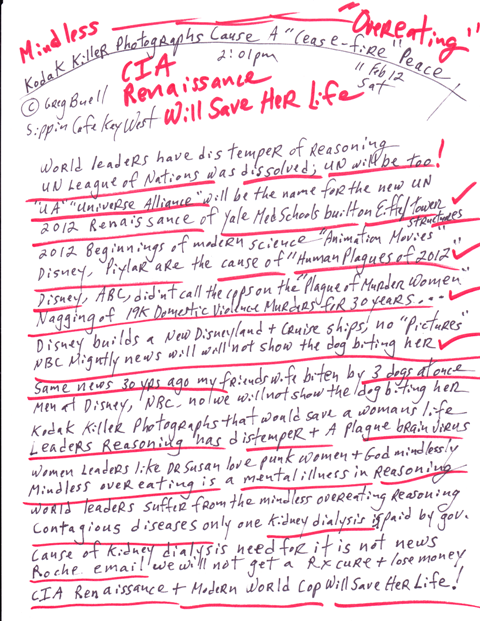 Mindless "Overeating"
Kodak Killer Photographs Cause A "Cease-fire" Peace
2:01pm
11 Feb 12
Sat
CIA
Renaissance
Will Save Her Life
© Greg Buell
Sippin Cafe Key West
World leaders have distemper of Reasoning
UN League of Nations was dissolved; UN will be too!
"UA" "Universe Alliance" will be the name for the new UN
2012 Renaissance of Yale Med Schools built on Eiffel Tower
structures
2012 Beginnings of modern science "Animation Movies"
Disney, Piylar are the cause of "Human Plagues of 2012"
Disney, ABC, didn't call the cops on the "Plague of Murder Women"
Nagging of 19K Domestic Violence Murders for 30 years...
Disney builds a New Disneyland + Cruise ships, no "Pictures"
NBC Nightly news will will not show the dog biting her
Same news 30 yrs ago my friends wife biten by 3 dogs at once
Men at Disney, NBC no we will not show the dog biting her
Kodak Killer Photographs that would save a womans life
Leaders Reasoning has distemper + A plague brain virus
Women Leaders like Dr Susan love punk women + God mindlessly
Mindless over eating is a mental illness in Reasoning
World leaders suffer from the mindless overeating Reasoning
Contagious diseases only one Kidney dialysis is paid by gov.
Cause of Kidney dialysis need for it is not news
Roche email we will not get a Rx cure + lose money
CIA Renaissance + Modern World Cop Will Save Her Life!